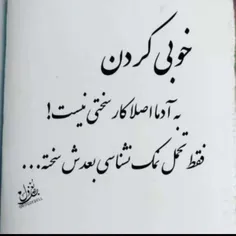 خوبی کردن
به آدما اصلا کار سختی نیست!
فقط تحمل نمک نشناسی بعدش سخته...